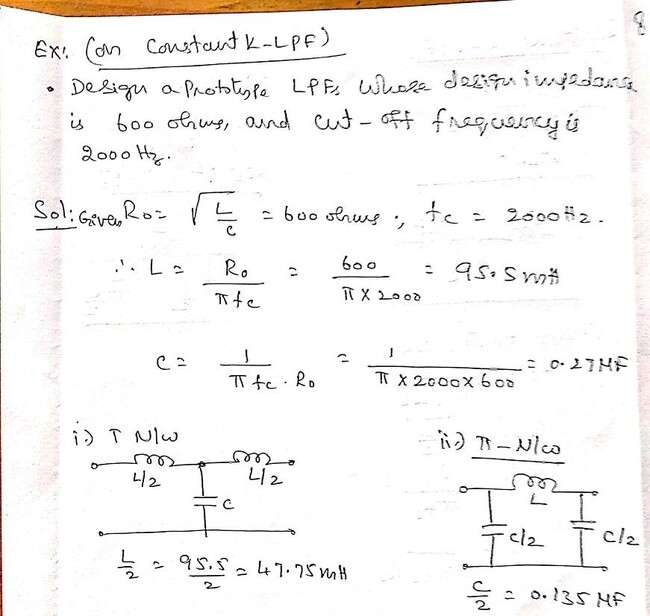 8
Ex: (on Constant K-LPF)
• Design a Prototype LPF, whose design impedance
is 600 ohms, and cut-off frequency is
2000 Hz.
Sol: Given R₀ = √(L/C) = 600 ohms ; fc = 2000 Hz.
∴ L = R₀/(π fc) = 600/(π X 2000) = 95.5 mH
C = 1/(π fc . R₀) = 1/(π X 2000 X 600) = 0.27 MF
i) T N/w
L/2 L/2
C
L/2 = 95.5/2 = 47.75 mH
ii) π-N/w
L
C/2 C/2
C/2 = 0.135 MF